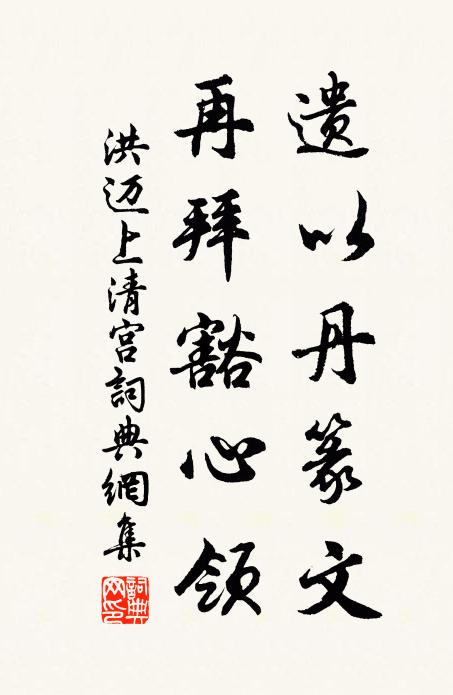 遺以丹篆文
再拜豁心領
洪迈上清宫詞典網集
詞典网印